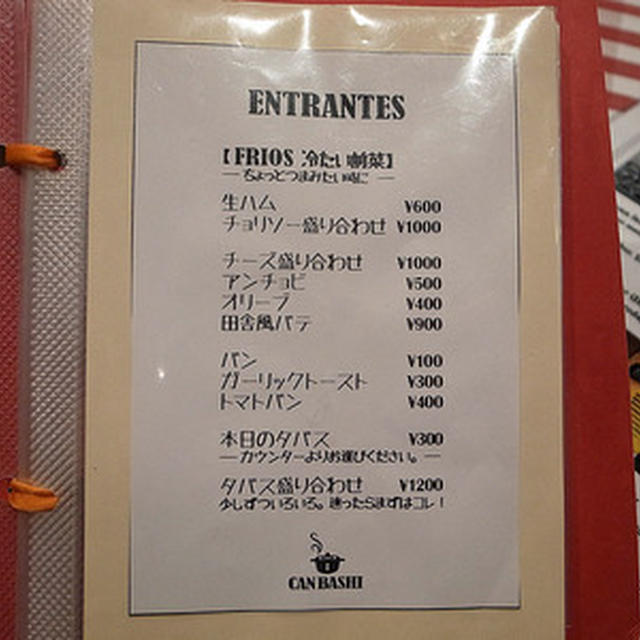 ENTRANTES
【FRIOS 冷たい前菜】
― ちょっとつまみたい時に ―
生ハム ¥600
チョリソー盛り合わせ ¥1000
チーズ盛り合わせ ¥1000
アンチョビ ¥500
オリーブ ¥400
田舎風パテ ¥900
パン ¥100
ガーリックトースト ¥300
トマトパン ¥400
本日のタパス ¥300
― カウンターよりお選びください。 ―
タパス盛り合わせ ¥1200
少しずついろいろ。迷ったらまずはコレ！
CAN BASHI